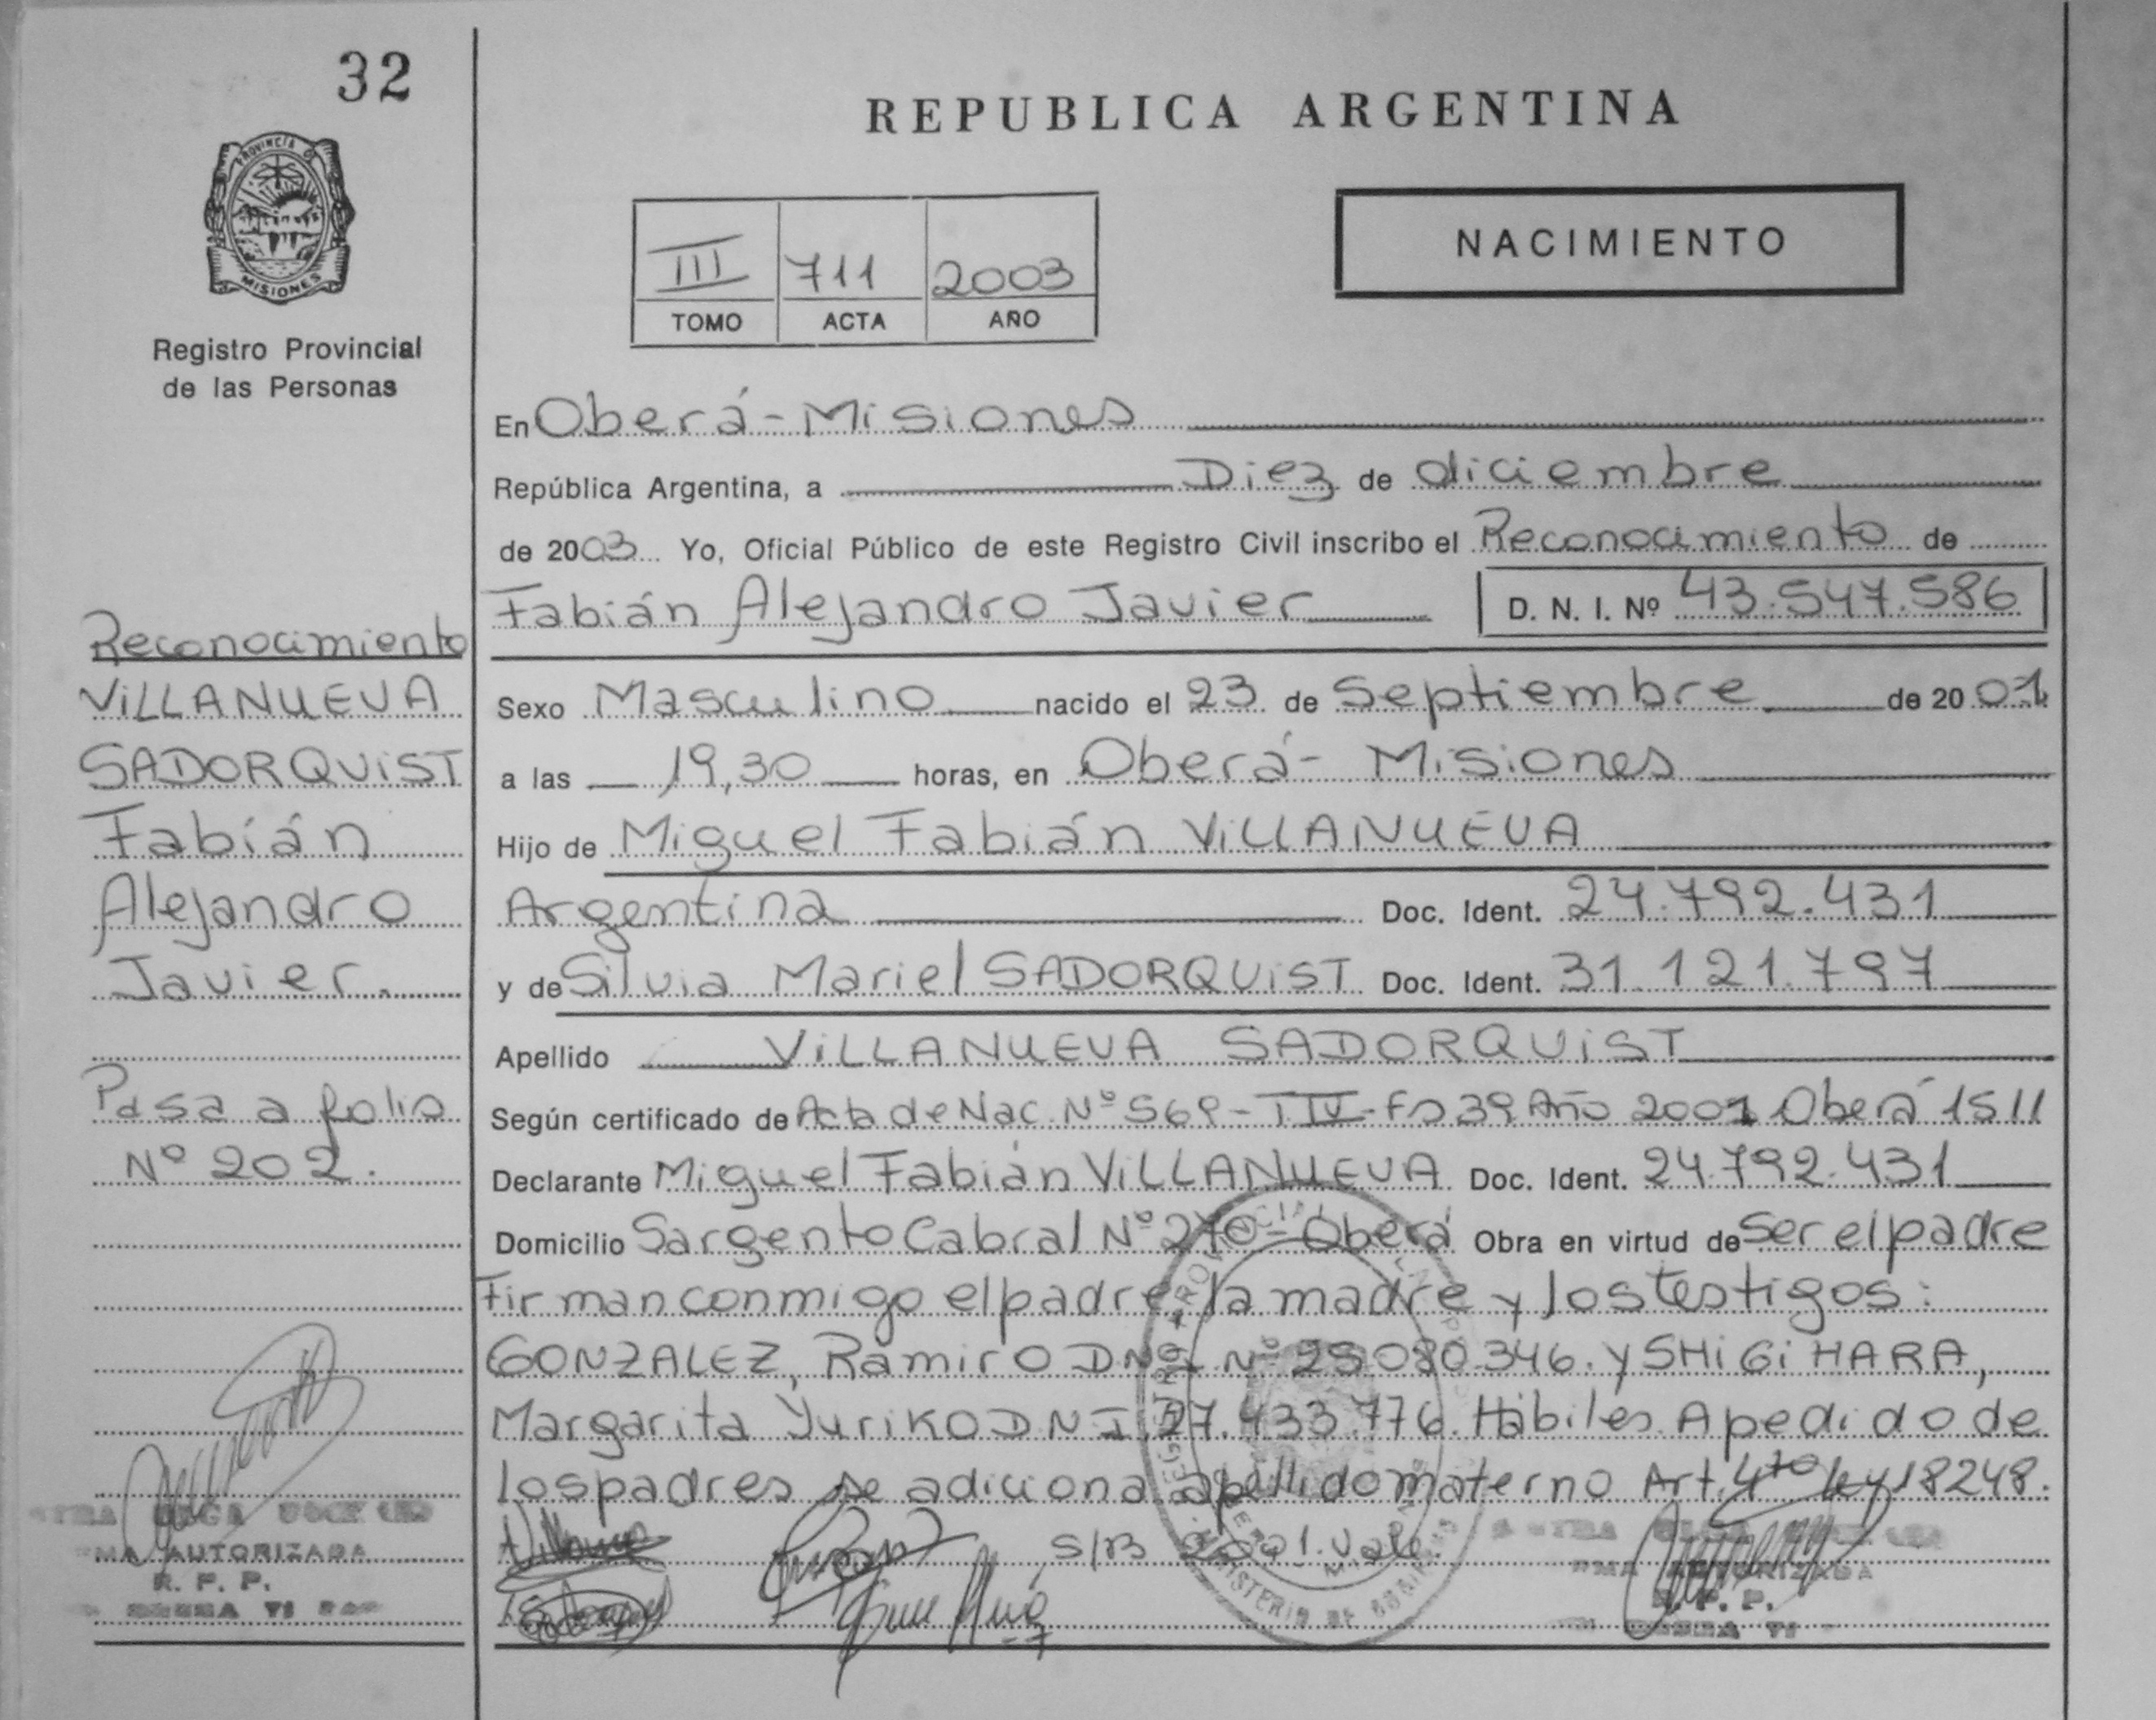 32
PROVINCIA DE
MISIONES
Registro Provincial
de las Personas
REPUBLICA ARGENTINA
III 711 2003
TOMO ACTA AÑO
NACIMIENTO
En Oberá - Misiones
República Argentina, a Diez de diciembre
de 2003 Yo, Oficial Público de este Registro Civil inscribo el Reconocimiento de
Fabián Alejandro Javier D. N. I. Nº 43.547.586
Sexo Masculino nacido el 23 de Septiembre de 2001
a las 19,30 horas, en Oberá - Misiones
Hijo de Miguel Fabián VILLANUEVA
Argentina Doc. Ident. 24.792.431
y de Silvia Mariel SADORQUIST Doc. Ident. 31.121.797
Apellido VILLANUEVA SADORQUIST
Según certificado de Acta de Nac. Nº 569 - T IV - Fº 39 Año 2001 Oberá 1511
Declarante Miguel Fabián VILLANUEVA Doc. Ident. 24.792.431
Domicilio Sargento Cabral Nº 270 - Oberá Obra en virtud de Ser el padre
Firman conmigo el padre, la madre y los testigos:
GONZALEZ, Ramiro DNI Nº 25.080.346. y SHIGIHARA,
Margarita Yuriko DNI 27.433.776. Hábiles. A pedido de
los padres se adiciona apellido materno Art. 4to ley 18248.
S/B 2001. Vale.
Reconocimiento
VILLANUEVA
SADORQUIST
Fabián
Alejandro
Javier.
Pasa a folio
Nº 202.
AUTORIZADA
R. P. P.
R. P. P.